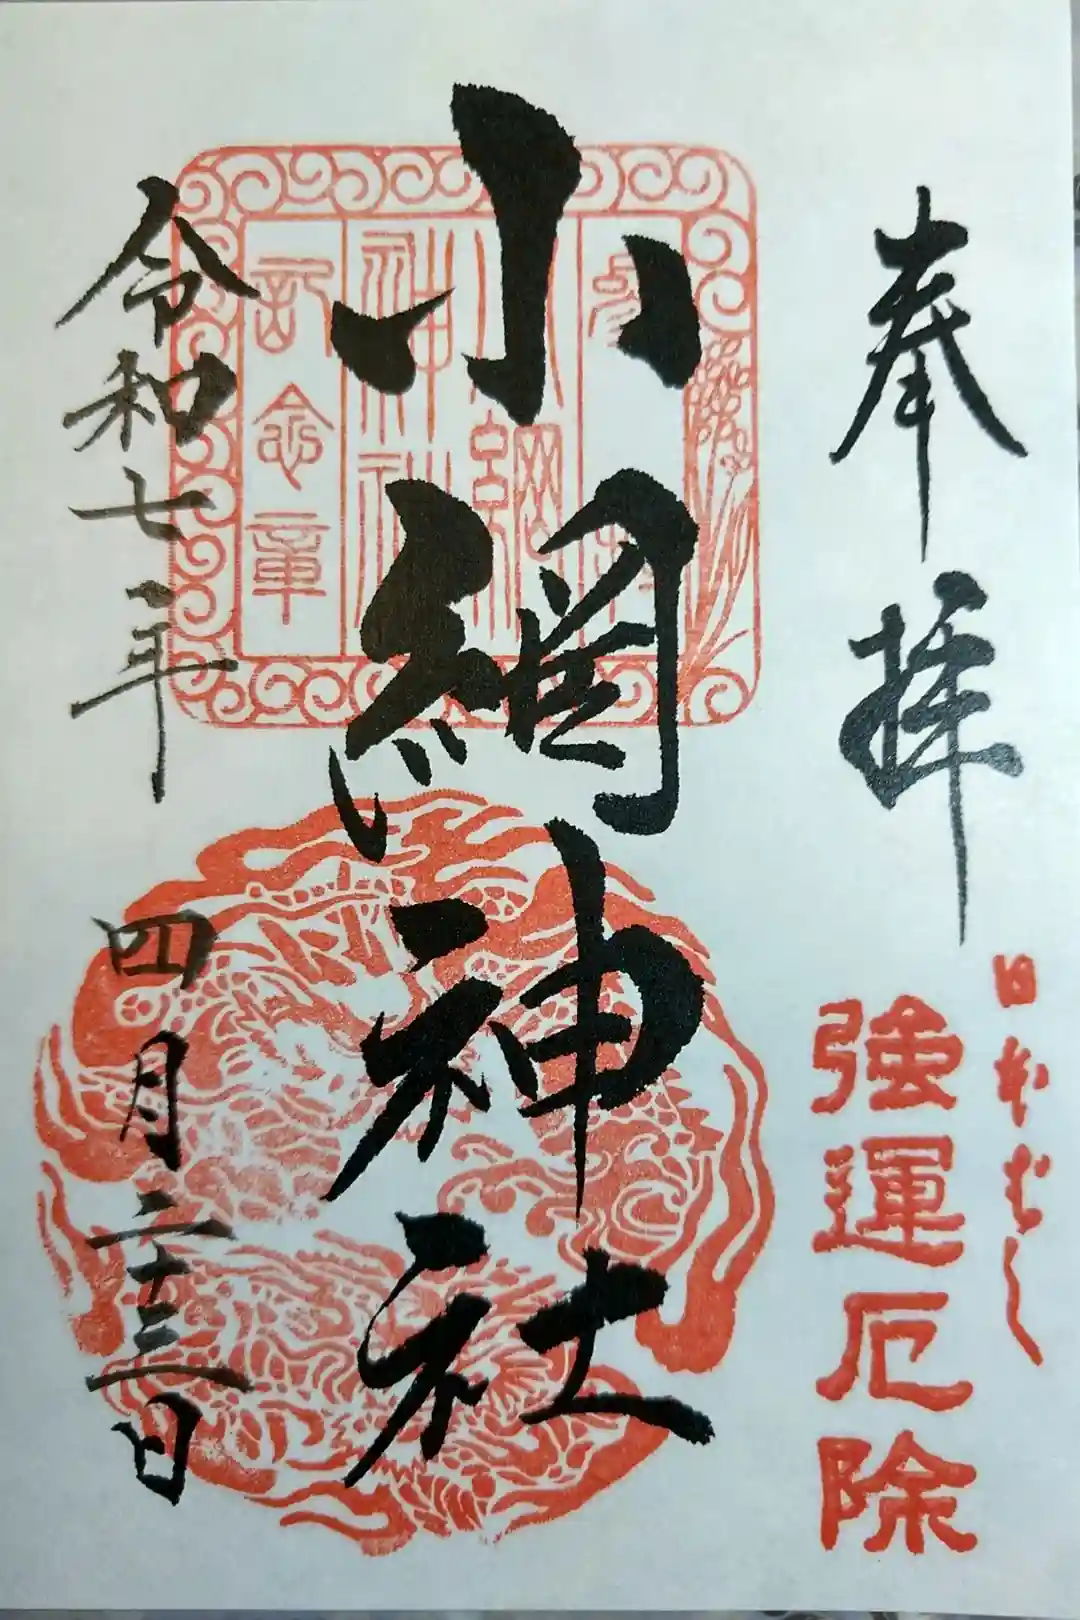 奉拝
日本ばし
強運厄除
小網神社
参拝
小網
神社
記念章
令和七年四月二十三日